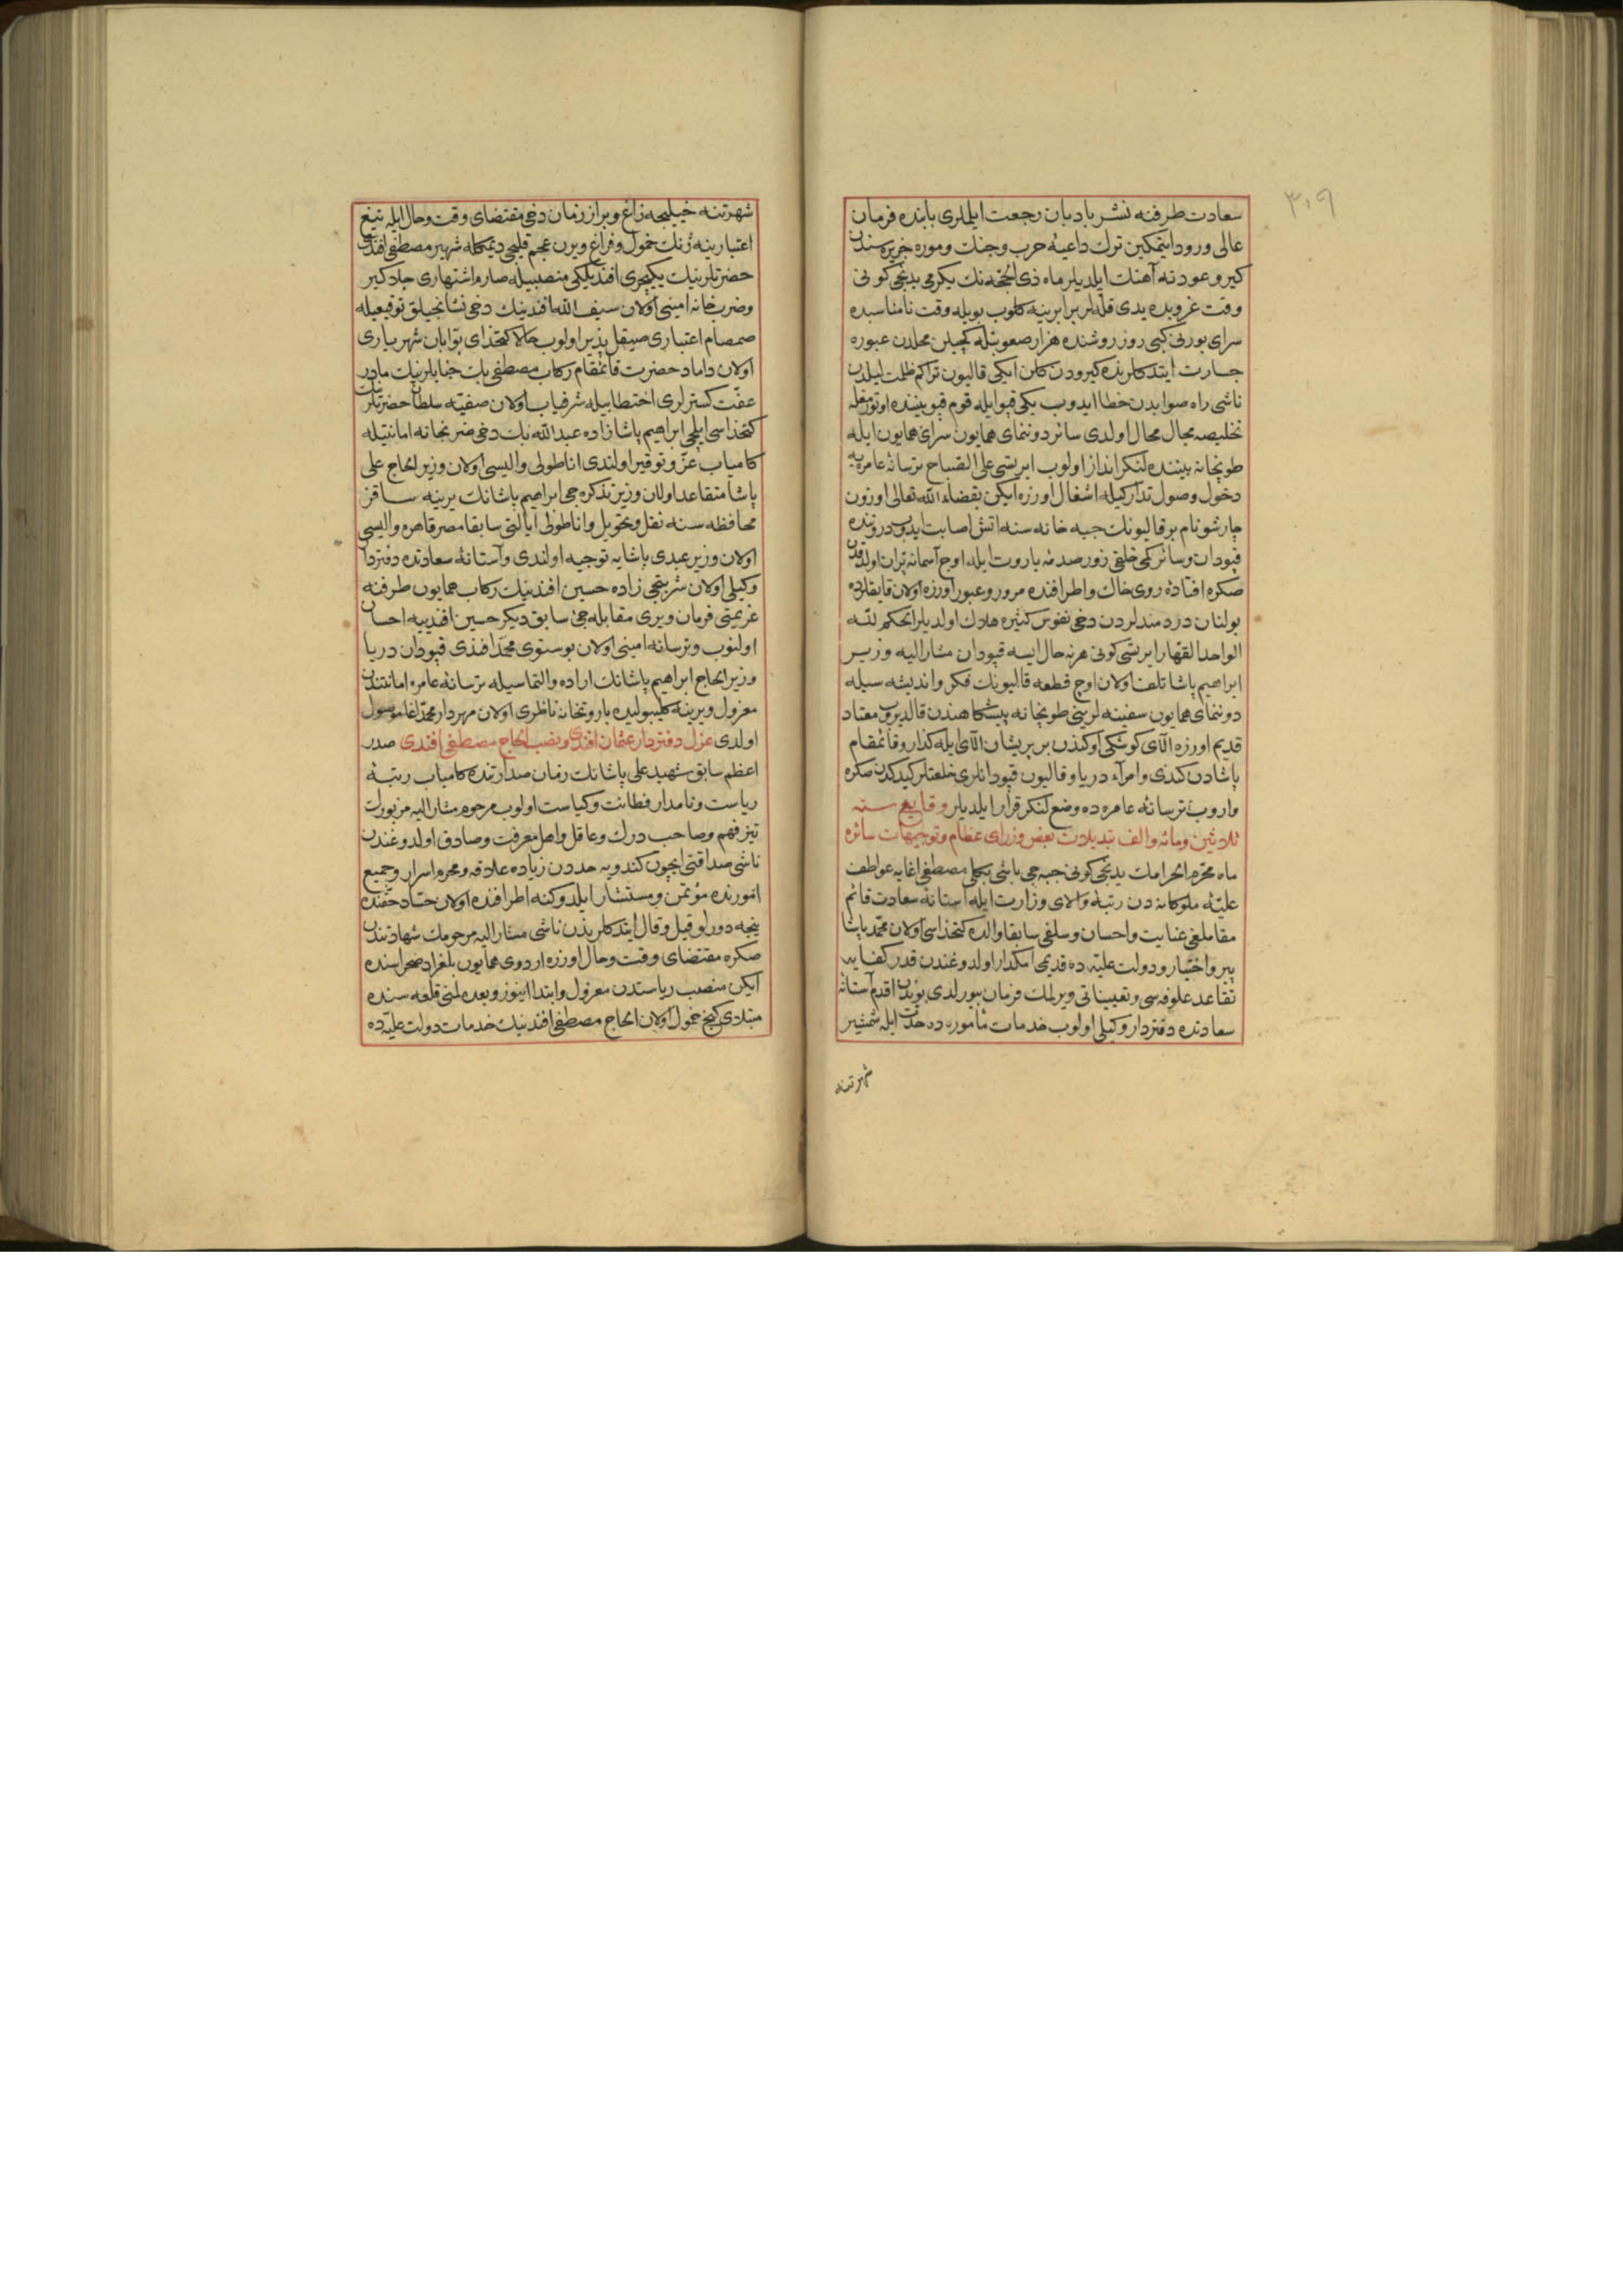 ٣٠٩
سعادت طرفنه نشر بادبان رجعت ايلملرى بابنده فرمان
عالى ورود ايتمكين ترك داعيۀ حرب وجنك وموره جزيره سندن
كيرو عودته آهنك ايلديلر ماه ذى الحجه نك يكرمى يدنجى كونى
وقت غروبده يدى قله لر برابرينه كلوب بويله وقت نامناسبده
سراى بورنى كبى روز روشنده هزار صعوبتله كچيلن محلدن عبوره
جسارت ايتدكلرنده كيرودن كلن ايكى قاليون تراكم ظلمت ليلدن
ناشى راه صوابدن خطا ايدوب يكى قپو ايله قوم قپو بيننده اوتورمغله
تخليصه مجال محال اولدى سائر دوننماى همايون سراى همايون ايله
طوپخانه بيننده لنكرانداز اولوب ايرتسى على الصباح ترسانۀ عامره يه
دخول وصول تداركيله اشغال اوزره ايكن بقضاء الله تعالى اوزون
چارشو نام بر قاليونك جبه خانه سنه اتش اصابت ايدوب درونده
قپودان وسائر كمى خلقى زور صدمۀ باروت ايله اوج آسمانه پران اولدقدن
صكره افتادۀ روى خاك واطرافنده مرور وعبور اوزره اولان قايقلرده
بولنان دردمندلردن دخى نفوس كثيره هلاك اولديلر الحكم لله
الواحد القهار ايرتسى كونى هر نه حال ايسه قپودان مشار اليه وزير
ابراهيم پاشا تلف اولان اوچ قطعه قاليونك فكر وانديشه سيله
دوننماى همايون سفينه لرينى طوپخانه پيشكاهندن قالديروب معتاد
قديم اوزره الاى كوشكى اوكندن بر پريشان الاى ايله كذار وقائمقام
پاشادن كندى وامراء دريا وقاليون قپودانلرى خلعتلر كيدكدن صكره
واروب ترسانۀ عامره ده وضع لنكر قرار ايلديلر وقايع سنه
ثلاثين ومائه والف تبديلات بعض وزراى عظام وتوجيهات سائره
ماه محرم الحرامك يدنجى كونى جبه جى باشى بكلى مصطفى اغايه عواطف
عليۀ ملوكانه دن رتبۀ والاى وزارت ايله آستانۀ سعادت قائم
مقاملغى عنايت واحسان وسلفى سابقا والده كتخداسى اولان محمد پاشا
پير واختيار ودولت عليه ده قديمى امكدار اولدوغندن قدر كفايه
تقاعد علوفه سى وتعييناتى ويرلمك فرمان بيورلدى بوندن اقدم آستانۀ
سعادتده دفتردار وكيلى اولوب خدمات مأموره ده حدت ايله شمشير
شهرتنه
شهرتنه خيليجه زاغ ويراز زمان دخى مقتضاى وقت وحال ايله تيغ
اعتبارينه ژنك خمول وفراغ ويرن عجم قليجى ديمكله شهير مصطفى افندى
حضرتلرينك يكيچرى افنديلكى منصبيله صارم اشتهارى جلاكير
وضربخانه امينى اولان سيف الله افندينك دخى نشانجيلق توقيعيله
صمصام اعتبارى صيقل پذير اولوب حالا كتخداى بوابان شهريارى
اولان داماد حضرت قائمقام ركاب مصطفى بك جنابلرينك مادر
عفت كسترلرى اختطابيله شرفياب اولان صفيه سلطان حضرتلرينك
كتخداسى ايلچى ابراهيم پاشا زاده عبد الله بك دخى ضربخانه امانتيله
كامياب عز وتوقير اولندى اناطولى واليسى اولان وزير الحاج على
پاشا متقاعد اولان وزير تذكره جى ابراهيم پاشانك يرينه ساقز
محافظه سنه نقل وتحويل واناطولى ايالتى سابقا مصر قاهره واليسى
اولان وزير عبدى پاشايه توجيه اولندى وآستانۀ سعادتده دفتردار
وكيلى اولان شربتجى زاده حسين افندينك ركاب همايون طرفنه
عزيمتى فرمان ويرى مقابله جئ سابق ديكر حسين افندييه احسان
اولنوب وترسانه امينى اولان بوسنوى محمد افندى قپودان دريا
وزير الحاج ابراهيم پاشانك اراده والتماسيله ترسانۀ عامره امانتندن
معزول ويرينه كليبوليده باروتخانه ناظرى اولان مهردار محمد اغا موصول
اولدى عزل دفتردار عثمان افندى ونصب الحاج مصطفى افندى صدر
اعظم سابق شهيد على پاشانك زمان صدارتنده كامياب رتبۀ
رياست ونامدار فطانت وكياست اولوب مرحوم مشار اليه مزبورك
تيز فهم وصاحب درك وعاقل واهل معرفت وصادق اولدوغندن
ناشى صداقتى ايچون كندويه حددن زياده علاقه ومحرم اسرار وجميع
امورنده مؤتمن ومستشار ايلدوكنه اطرافنده اولان حساد حقنده
نيجه دورلو قيل وقال ايتدكلرندن ناشى مشار اليه مرحومك شهادتندن
صكره مقتضاى وقت وحال اوزره اردوى همايون بلغراد صحراسنده
ايكن منصب رياستدن معزول وابتدا اينوز وبعده لمنى قلعه سنده
مبتلاى كنج خمول اولان الحاج مصطفى افندينك خدمات دولت عليه ده